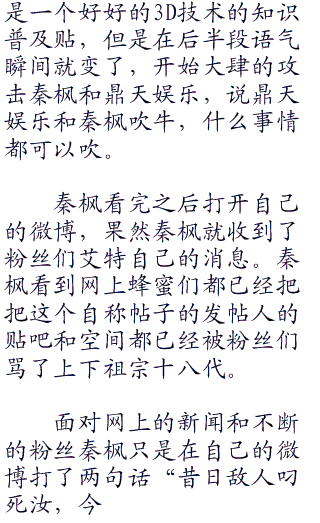 是一个好好的3D技术的知识
普及贴，但是在后半段语气
瞬间就变了，开始大肆的攻
击秦枫和鼎天娱乐，说鼎天
娱乐和秦枫吹牛，什么事情
都可以吹。
秦枫看完之后打开自己
的微博，果然秦枫就收到了
粉丝们艾特自己的消息。秦
枫看到网上蜂蜜们都已经把
把这个自称帖子的发帖人的
贴吧和空间都已经被粉丝们
骂了上下祖宗十八代。
面对网上的新闻和不断
的粉丝秦枫只是在自己的微
博打了两句话“昔日敌人叼
死汝，今